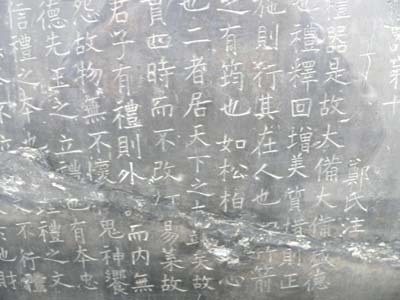 第十
鄭氏注
禮器是故大備大備盛德
也禮釋回增美質措則正
施則行其在人也 竹箭
之有筠也如松柏 心
也二者居天下之大端矣故
貫四時而不改 易葉故
君子有禮則外 而內無
怨故物無不懷 鬼神饗
德先王之立禮也有本 忠
信禮之本也 禮之文
不行禮
地財